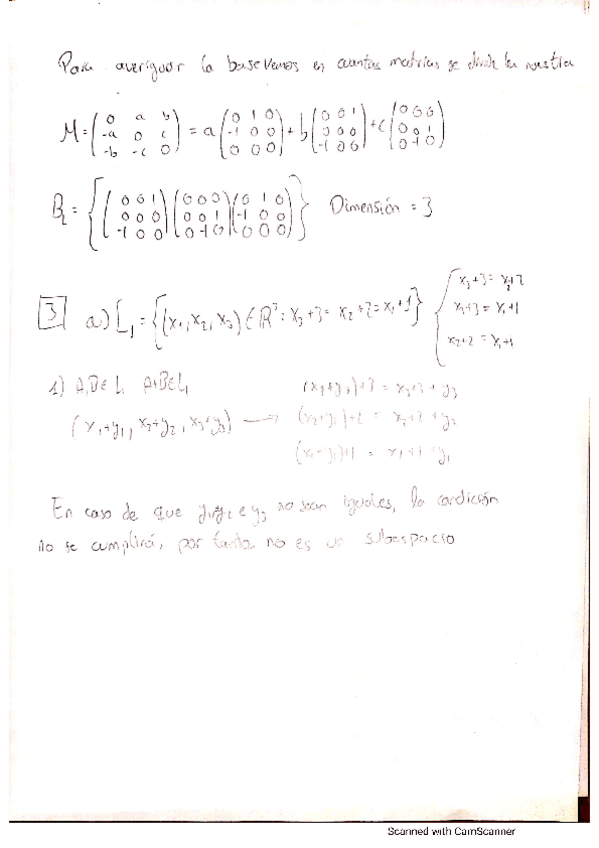 Para averiguar la base vemos en cuantas matrices se divide la nuestra
M = ( 0 a b / -a 0 c / -b -c 0 ) = a ( 0 1 0 / -1 0 0 / 0 0 0 ) + b ( 0 0 1 / 0 0 0 / -1 0 0 ) + c ( 0 0 0 / 0 0 1 / 0 -1 0 )
B₂ = { ( 0 0 1 / 0 0 0 / -1 0 0 ) ( 0 0 0 / 0 0 1 / 0 -1 0 ) ( 0 1 0 / -1 0 0 / 0 0 0 ) } Dimensión = 3
3 a) L₁ = { (x₁, x₂, x₃) ∈ ℝ³ : x₃+3 = x₂+2 = x₁+1 } { x₃+3 = x₂+2
x₃+3 = x₁+1
x₂+2 = x₁+1
1) A,B ∈ L₁ A+B ∈ L₁ (x₃+y₃)+3 = x₃+3+y₃
(x₁+y₁, x₂+y₂, x₃+y₃) → (x₂+y₂)+2 = x₂+2+y₂
(x₁+y₁)+1 = x₁+1+y₁
En caso de que y₁, y₂ e y₃ no sean iguales, la condición
no se cumplirá, por tanto no es un subespacio
Scanned with CamScanner